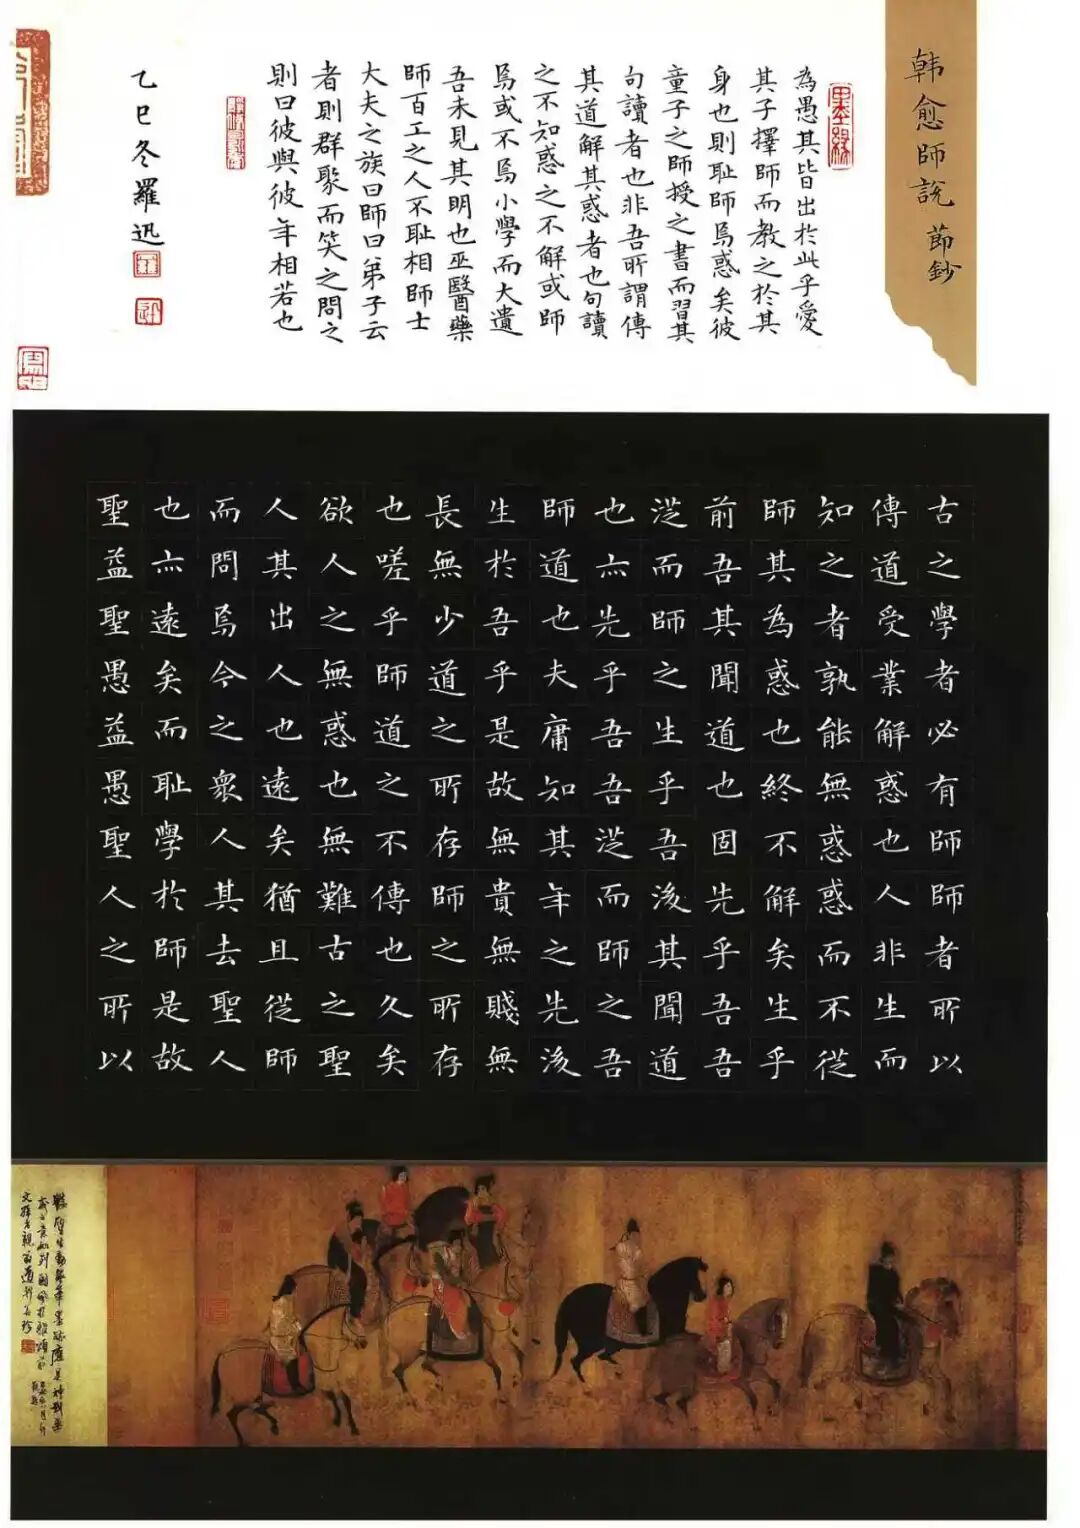 韩愈師説
節鈔
古之學者必有師師者所以
傳道受業解惑也人非生而
知之者孰能無惑惑而不從
師其為惑也終不解矣生乎
前吾其聞道也固先乎吾吾
從而師之生乎吾後其聞道
也亦先乎吾吾從而師之吾
師道也夫庸知其年之先後
生於吾乎是故無貴無賤無
長無少道之所存師之所存
也嗟乎師道之不傳也久矣
欲人之無惑也無難古之聖
人其出人也遠矣猶且從師
而問焉今之衆人其去聖人
也亦遠矣而耻學於師是故
聖益聖愚益愚聖人之所以
為愚其皆出於此乎愛
其子擇師而教之於其
身也則耻師焉惑矣彼
童子之師授之書而習其
句讀者也非吾所謂傳
其道解其惑者也句讀
之不知惑之不解或師
焉或不焉小學而大遺
吾未見其明也巫醫藥
師百工之人不耻相師士
大夫之族曰師曰弟子云
者則群聚而笑之問之
則曰彼與彼年相若也
乙巳冬羅迅